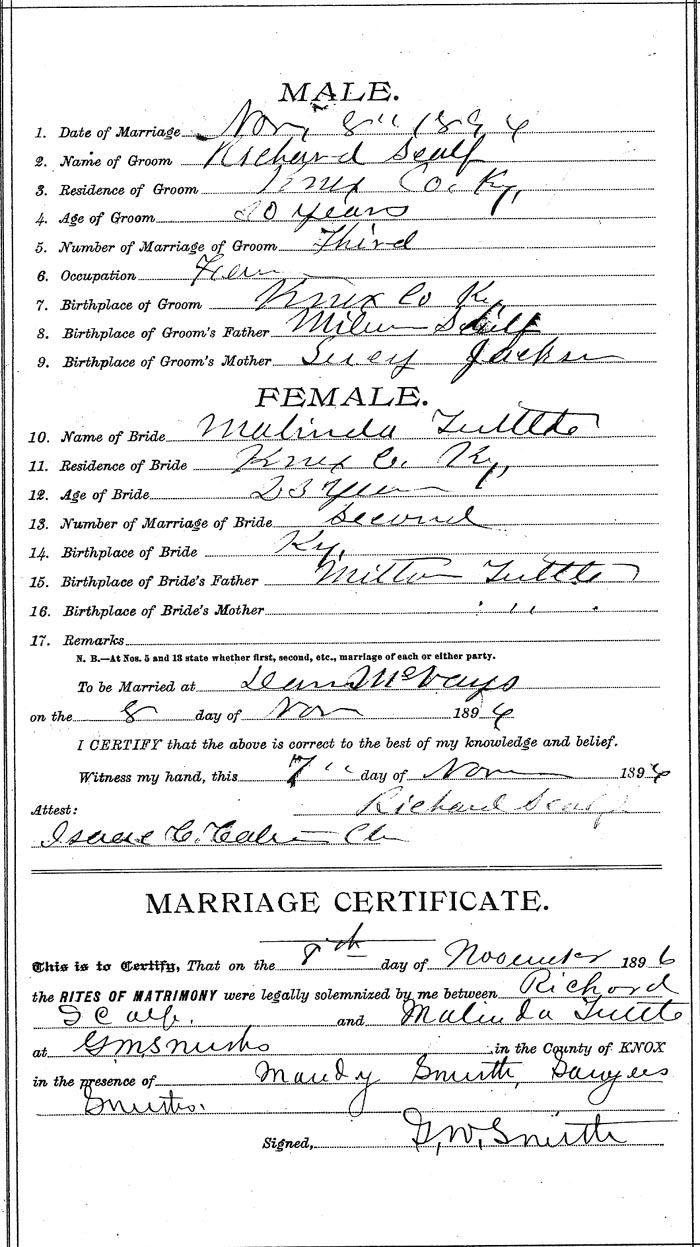 MALE.
1. Date of Marriage Nov, 8" 1896
2. Name of Groom Richard Scalf
3. Residence of Groom Knox Co. Ky,
4. Age of Groom years
5. Number of Marriage of Groom Third
6. Occupation
7. Birthplace of Groom Knox Co Ky
8. Birthplace of Groom's Father Scalf
9. Birthplace of Groom's Mother Lucy Jackson
FEMALE.
10. Name of Bride Malinda Tuttle
11. Residence of Bride Knox Co. Ky,
12. Age of Bride 23 Years
13. Number of Marriage of Bride Second
14. Birthplace of Bride Ky,
15. Birthplace of Bride's Father Milton Tuttle
16. Birthplace of Bride's Mother " "
17. Remarks
N. B.—At Nos. 5 and 13 state whether first, second, etc., marriage of each or either party.
To be Married at McVays
on the 8 day of Nov 1896
I CERTIFY that the above is correct to the best of my knowledge and belief.
Witness my hand, this 7" day of Nov 1896
Attest: Richard Scalf
Isaac C.
MARRIAGE CERTIFICATE.
This is to Certify, That on the 8th day of November 1896
the RITES OF MATRIMONY were legally solemnized by me between Richard
Scalf. and Malinda Tuttle
at in the County of KNOX
in the presence of Mandy Smith,
Smith.
Signed, G, W, Smith